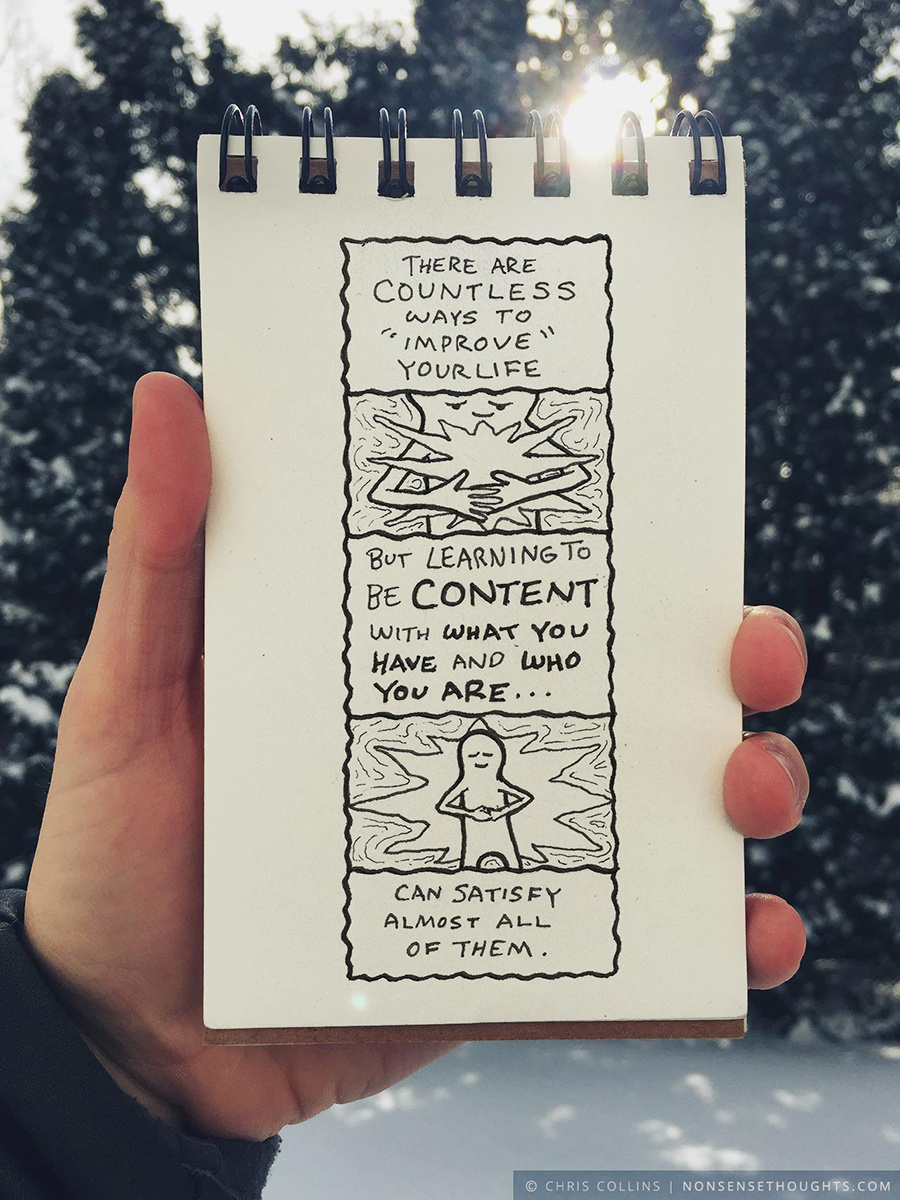 THERE ARE
COUNTLESS
WAYS TO
"IMPROVE"
YOUR LIFE
BUT LEARNING TO
BE CONTENT
WITH WHAT YOU
HAVE AND WHO
YOU ARE...
CAN SATISFY
ALMOST ALL
OF THEM.
© CHRIS COLLINS | NONSENSETHOUGHTS.COM